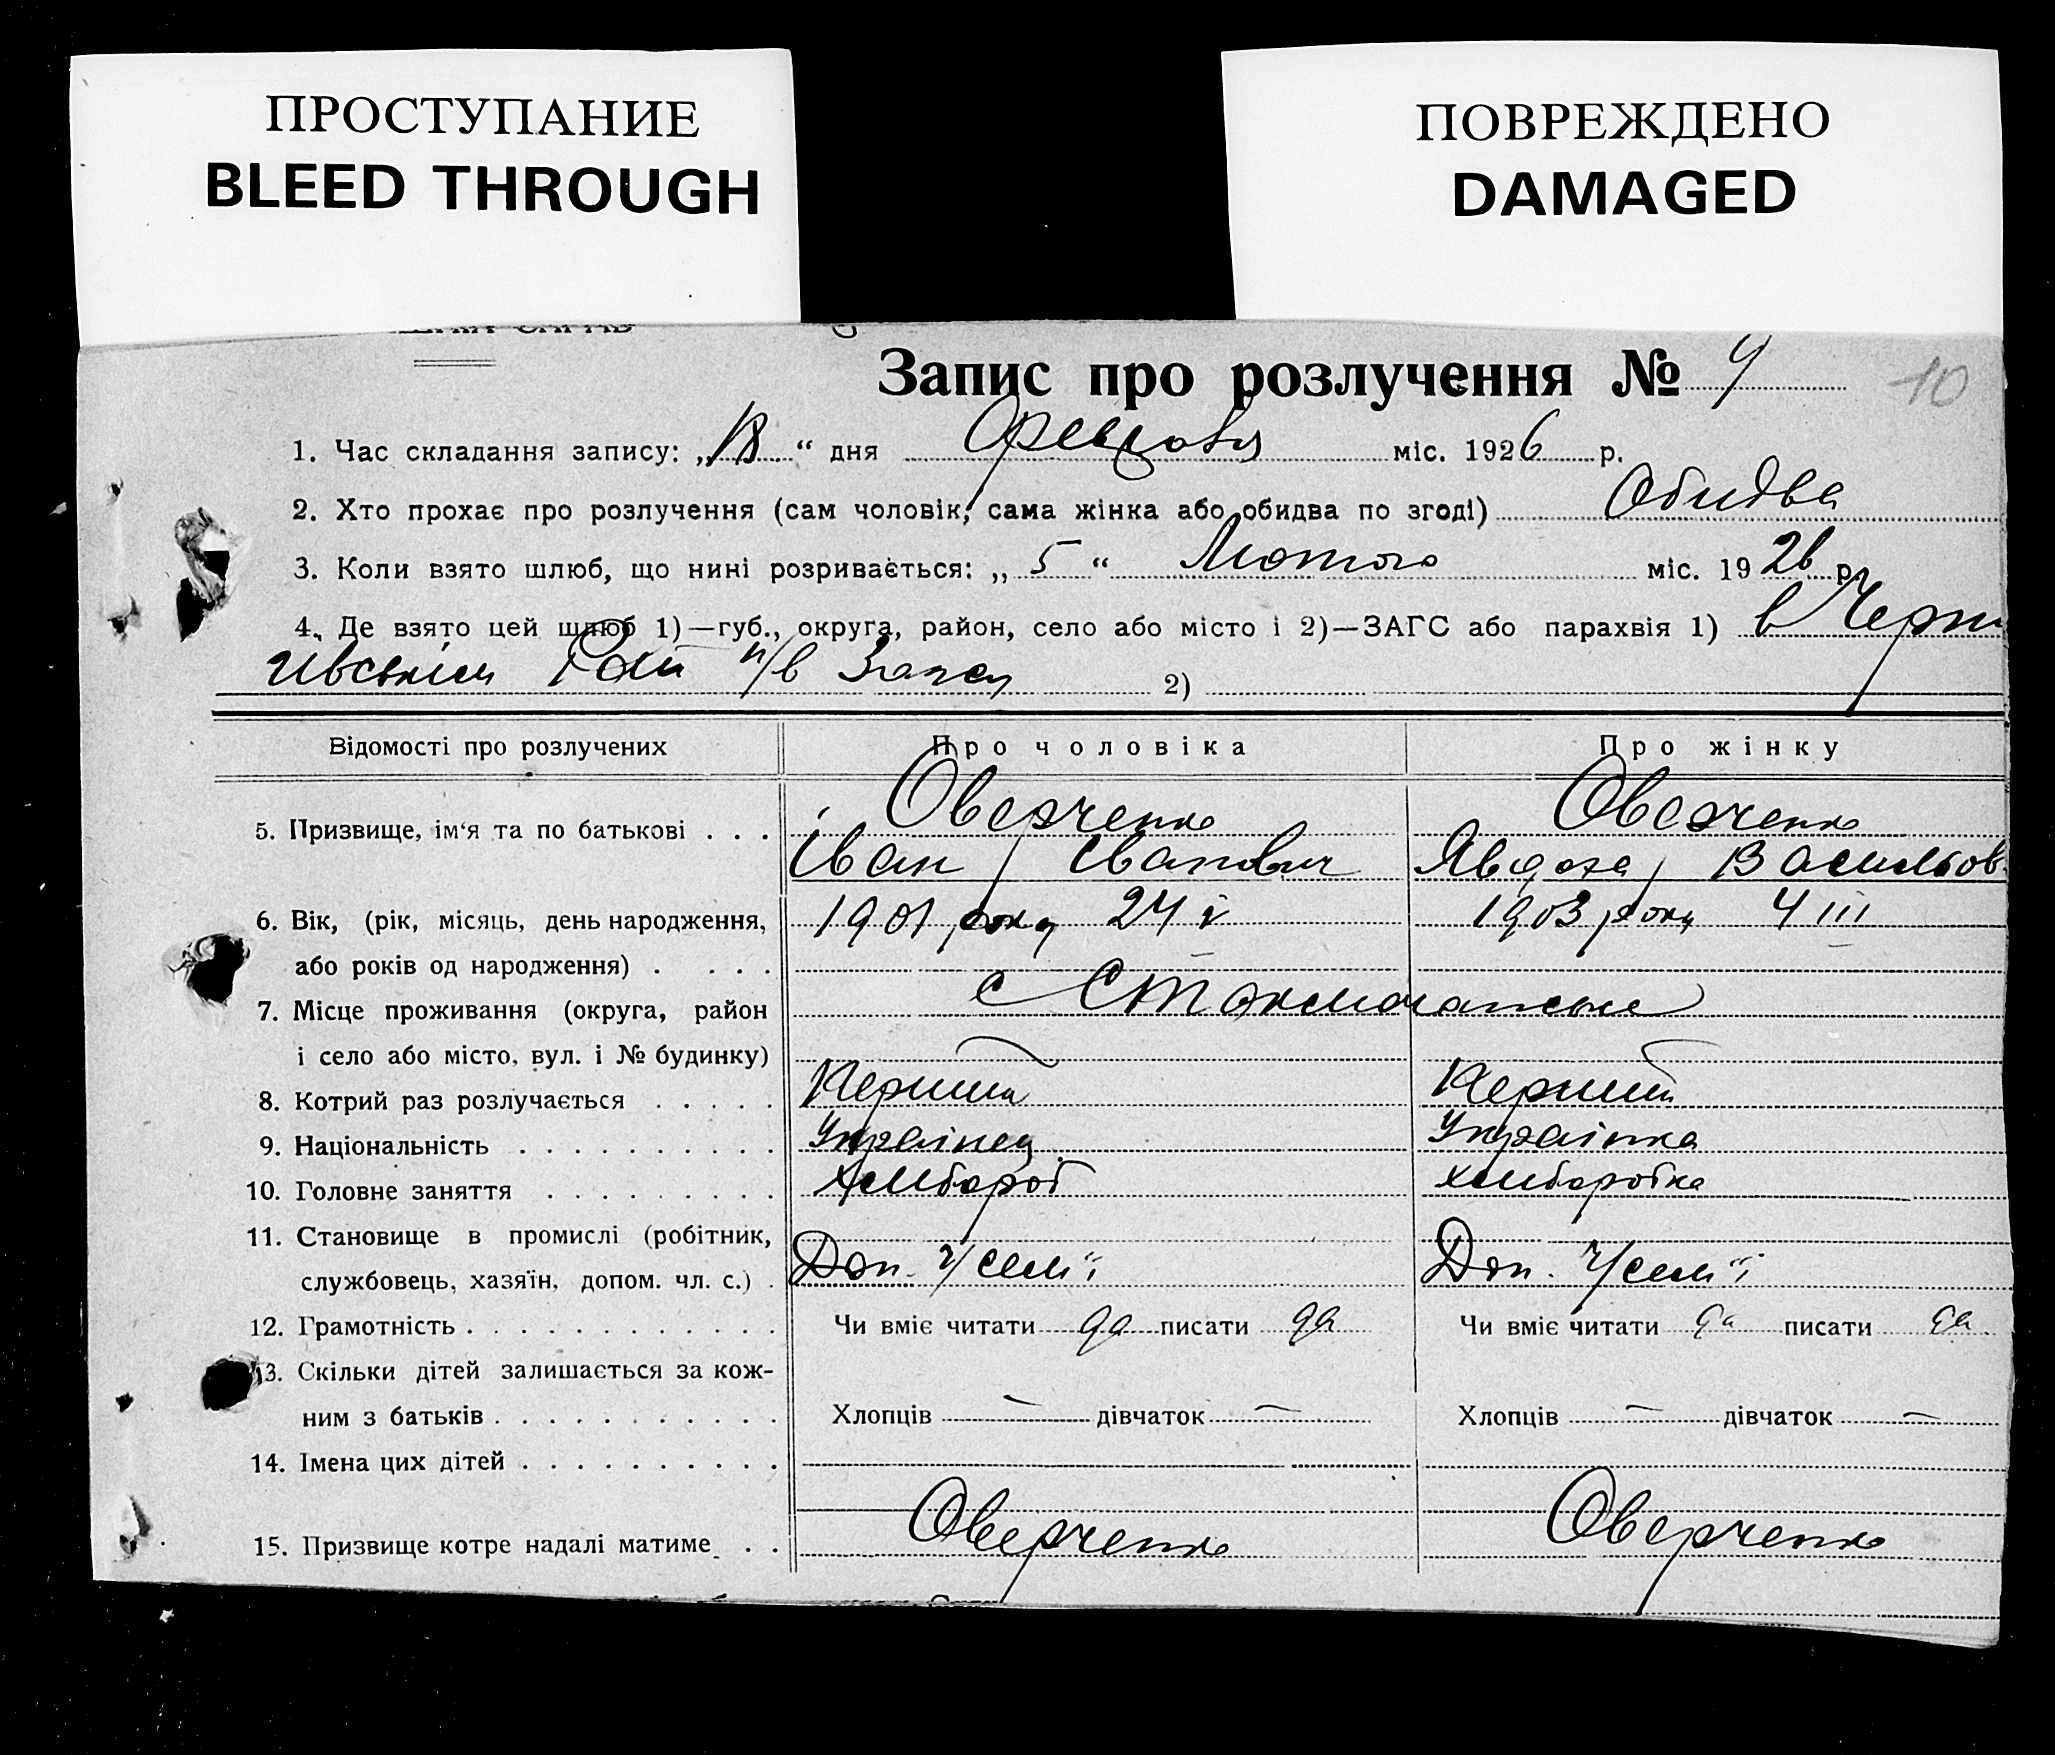 ПРОСТУПАНИЕ
BLEED THROUGH
ПОВРЕЖДЕНО
DAMAGED
Запис про розлучення № 4
10
1. Час складання запису: „18“ дня Февраля міс. 1926 р.
2. Хто прохає про розлучення (сам чоловік, сама жінка або обидва по згоді) Обидва
3. Коли взято шлюб, що нині розривається: „5“ Лютого міс. 1926 р.
4. Де взято цей шлюб 1)—губ., округа, район, село або місто і 2)—ЗАГС або парахвія 1) в Черни
гівськім Рай п/в 2)
Відомості про розлучених Про чоловіка Про жінку
5. Призвище, ім‘я та по батькові . . . Оверченко Оверченко
Іван Іванович Явдоха Васильов
6. Вік, (рік, місяць, день народження, 1901 року 24 і 1903 року 4 III
або років од народження) . . . .
7. Місце проживання (округа, район с Стокмачанське
і село або місто, вул. і № будинку)
8. Котрий раз розлучається . . . . . Перший Перший
9. Національність . . . . . . . . . . Українец Українка
10. Головне заняття . . . . . . . . . хлибороб хлиборобка
11. Становище в промислі (робітник,
службовець, хазяїн, допом. чл. с.) . Доп. ч/семії Доп. ч/семії
12. Грамотність . . . . . . . . . . . . Чи вміє читати да писати да Чи вміє читати да писати да
13. Скільки дітей залишається за кож-
ним з батьків . . . . . . . . . . . Хлопців — дівчаток — Хлопців — дівчаток —
14. Імена цих дітей . . . . . . . . . .
15. Призвище котре надалі матиме . . Оверченко Оверченко